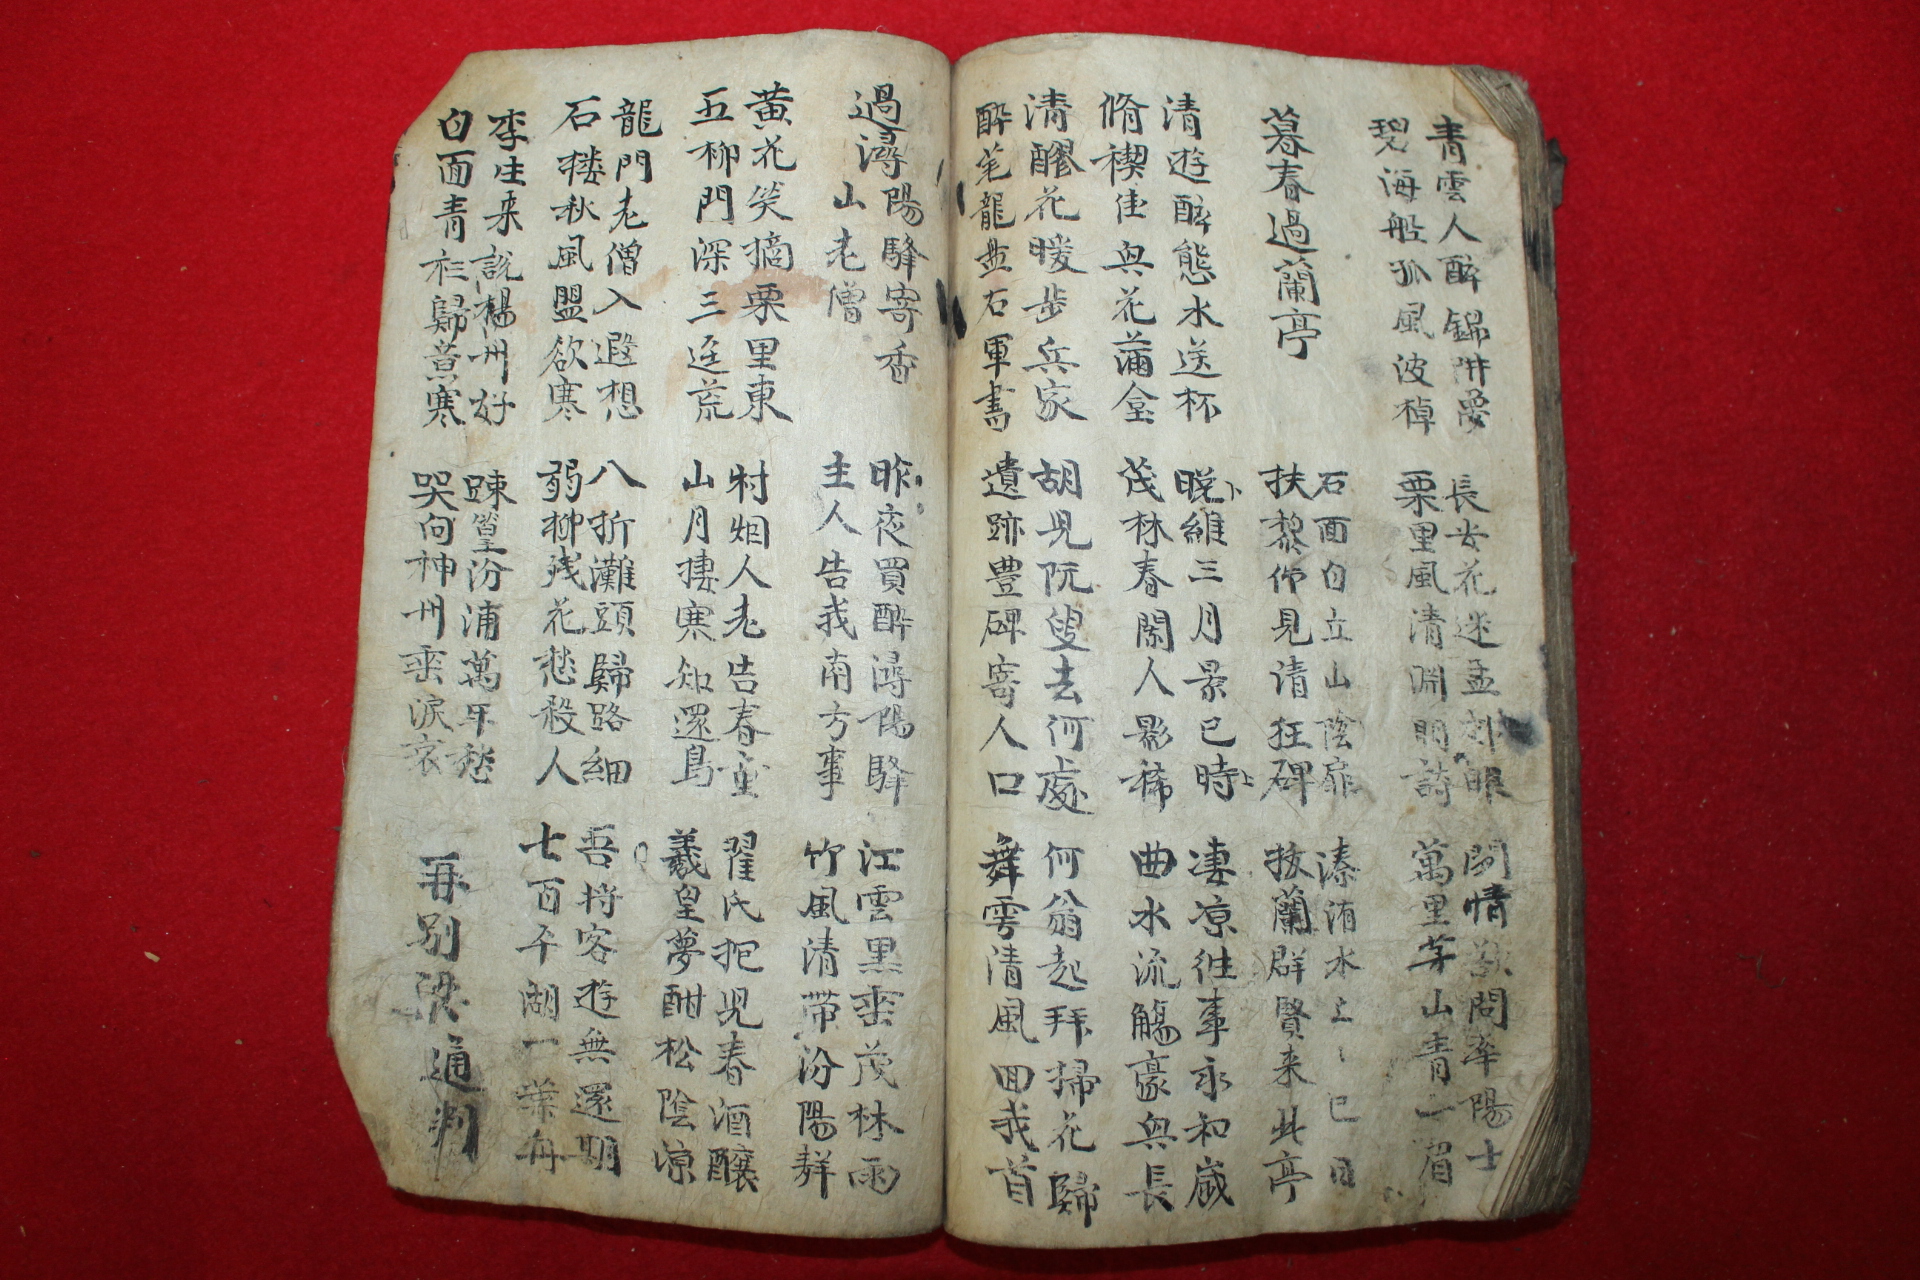 青雲人醉錦阱夢
碧海船孤風波棹
長安花迷孟郊眼
栗里風清淵明詩
閑情欲問牽陽士
萬里芽山青一眉
暮春過蘭亭
石面白立山陰扉
扶黎佇見請狂碑
溱洧水上〻巳日
拔蘭群賢来此亭
清遊醉態水送杯
脩禊佳興花蒲盒
晩維三月景已時
茂林春闌人影稀
凄凉往事永和歲
曲水流觴豪興長
清醪花暖步兵家
醉笔龍盘右軍書
胡児阮叟去何處
遺跡豊碑寄人口
何翁起拜掃花歸
舞雩清風回我首
過潯陽驛寄香
山老僧
昨夜買醉潯陽驛
主人告我南方事
江雲黑垂茂林雨
竹風清帶汾陽群
黃花笑摘栗里東
五柳門深三逕荒
村烟人老告春童
山月捿寒知還鳥
翟氏抱児春酒釀
羲皇夢酣松陰凉
龍門老僧入遐想
石楼秋風盟欲寒
八折灘頭歸路細
弱柳残花愁殺人
吾将客遊無還期
七百平湖一葉舟
李生来説楊州好
白面青衫歸意寒
踈篁汾浦萬年愁
哭向神州垂淚哀
再別梁通判